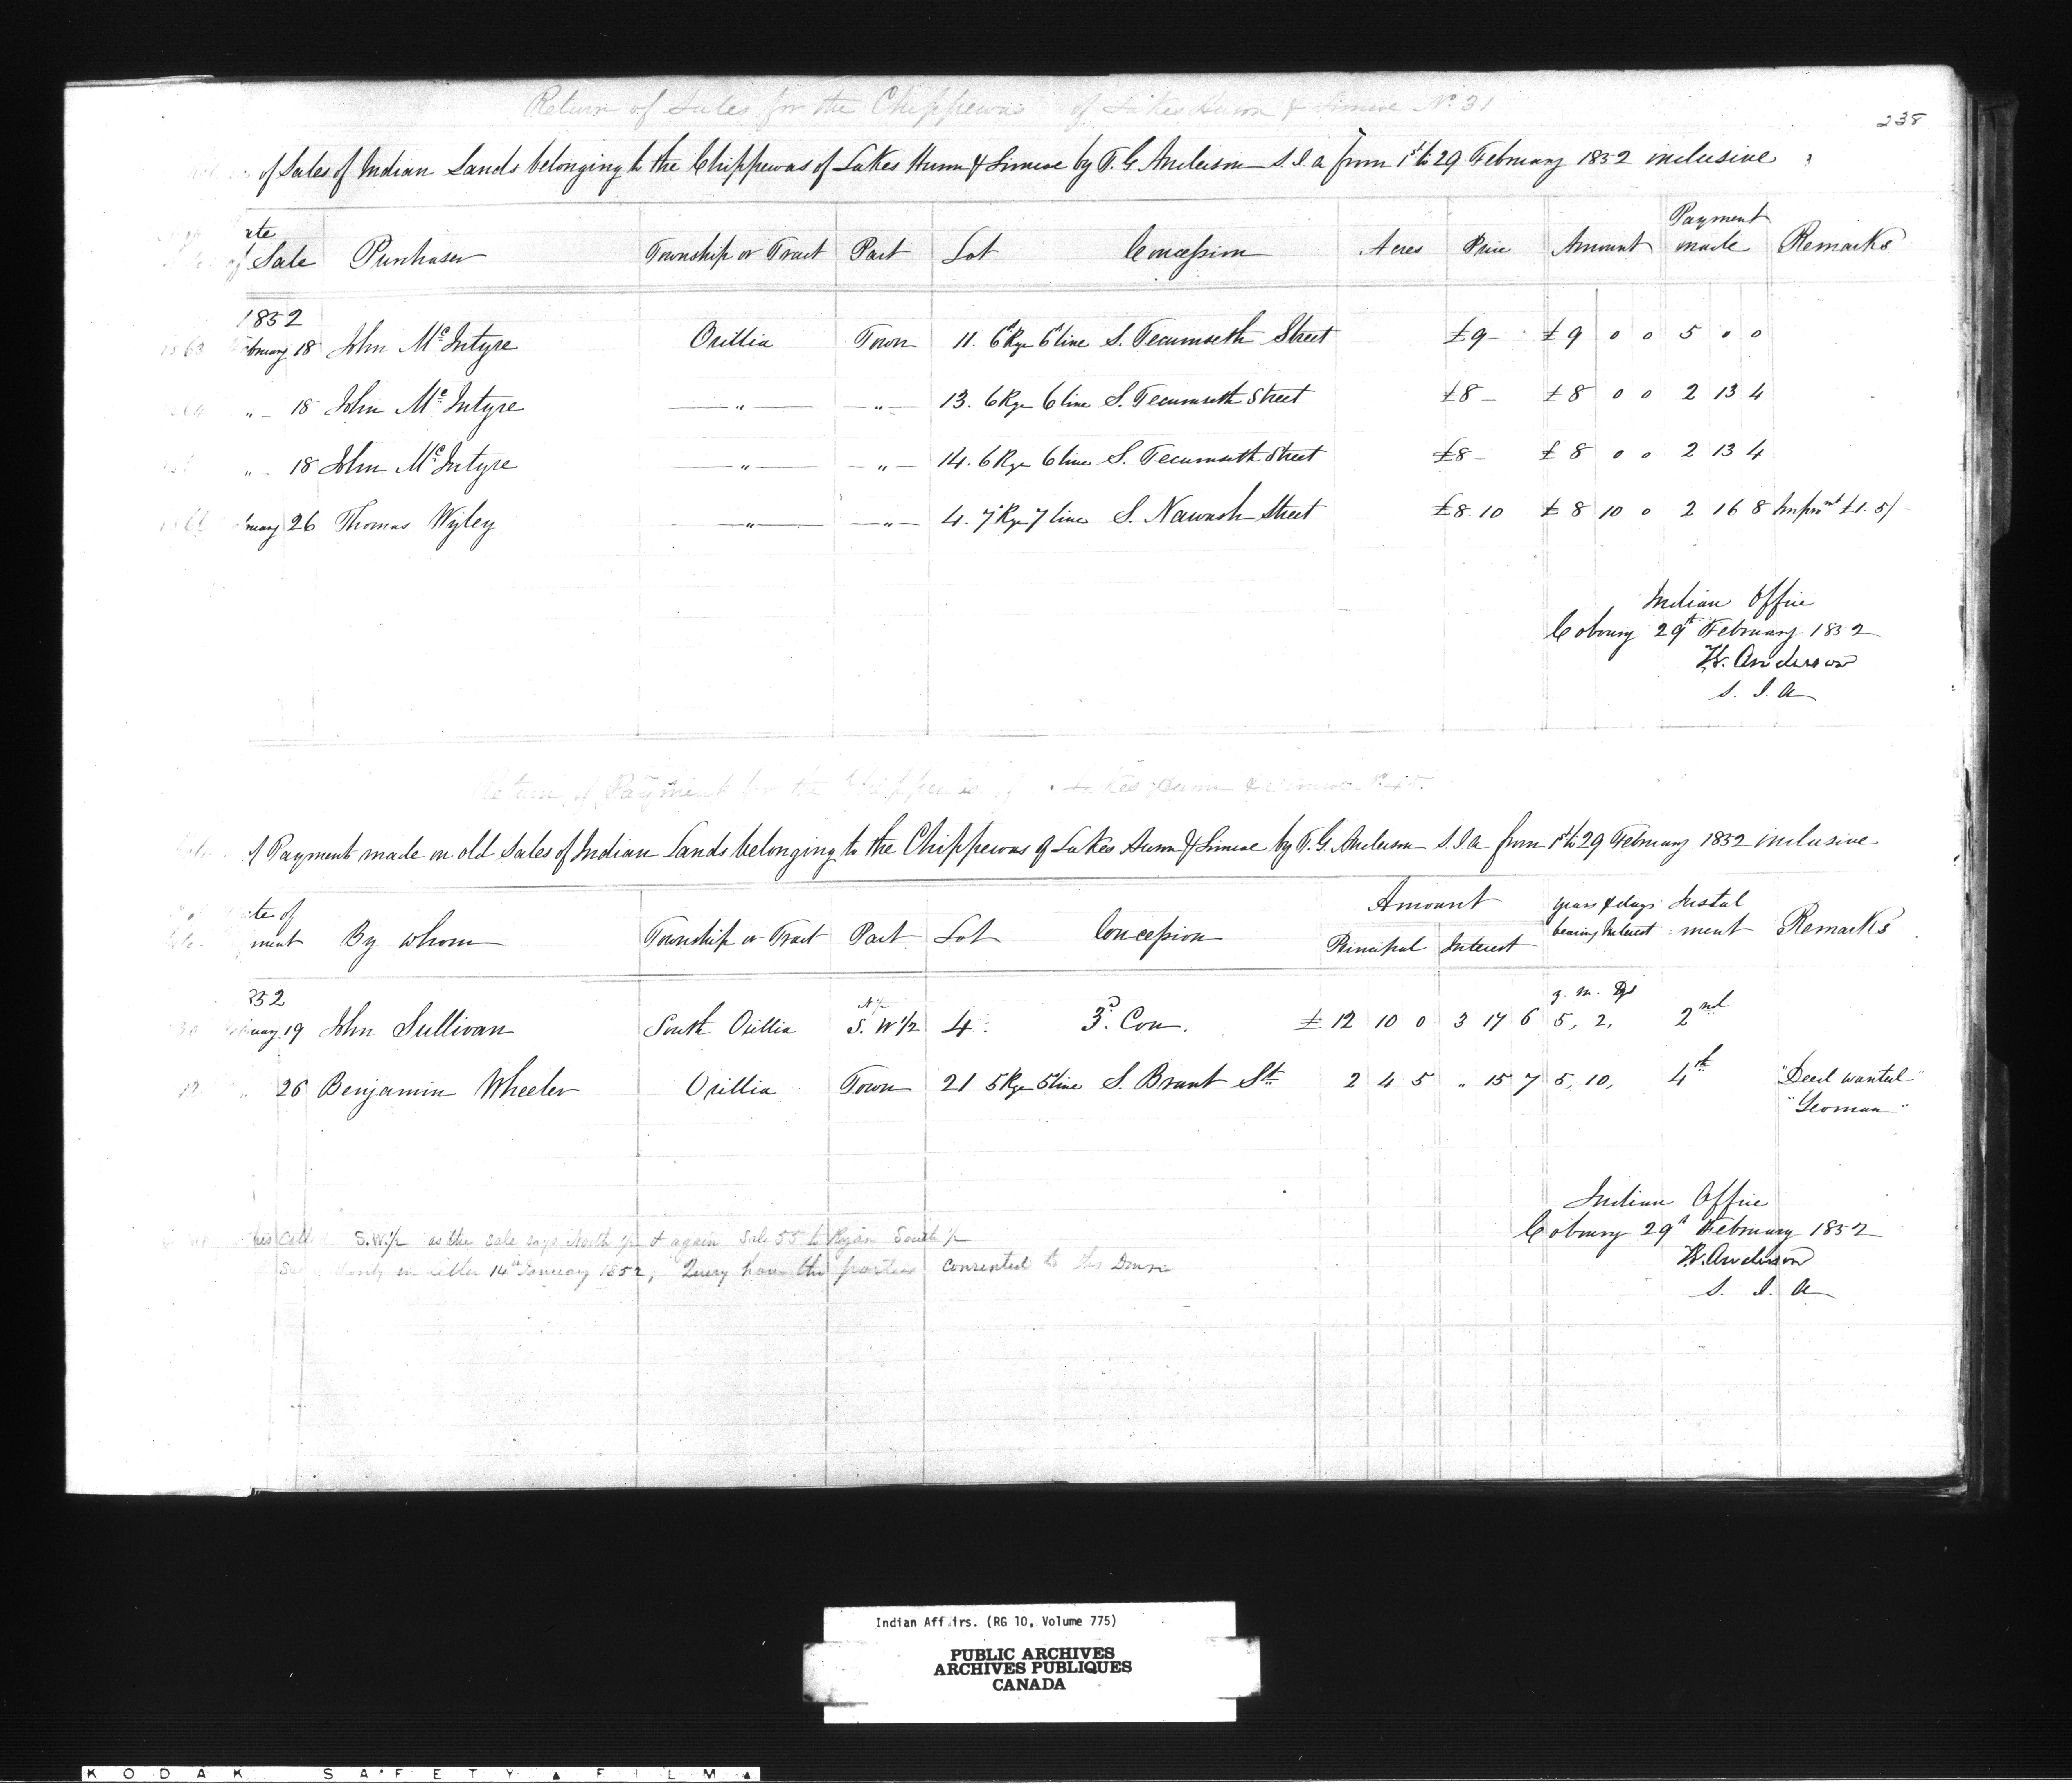 Return of Sales for the Chippewas of Lakes Huron & Simcoe No. 31
238
of Sales of Indian Lands belonging to the Chippewas of Lakes Huron & Simcoe by T. G. Anderson S. I. A from 1st to 29 February 1852 inclusive
ate of Sale Purchaser Township or Tract Part Lot Concession Acres Price Amount Payment made Remarks
1852
1863 February 18 John McIntyre Orillia Town 11. 6th Rge 6th line S. Tecumseth Street £9 – £9 0 0 5 0 0
" – 18 John McIntyre — " — — " — 13. 6 Rge 6 line S. Tecumseth Street £8 – £8 0 0 2 13 4
" – 18 John McIntyre — " — — " — 14. 6 Rge 6 line S. Tecumseth Street £8 – £8 0 0 2 13 4
ruary 26 Thomas Wyley — " — — " — 4. 7 Rge 7 line S. Nawash Street £8 10 £8 10 0 2 16 8 Impmt £1. 5/
Indian Office
Cobourg 29th February 1852
T.G. Anderson
S. I. A
Return of Payment for the Chippewas of Lakes Huron & Simcoe No.
of Payment made on old Sales of Indian Lands belonging to the Chippewas of Lakes Huron & Simcoe by T. G. Anderson S. I. A from 1st to 29 February 1852 inclusive
ate of ment By whom Township or Tract Part Lot Concession Amount Principal Interest years & days bearing Interest Instalment Remarks
852 y. m. Dys
ruary 19 John Sullivan South Orillia N ½ S. W ½ 4 3d. Con. £ 12 10 0 3 17 6 5, 2, 2nd
" 26 Benjamin Wheeler Orillia Town 21 5 Rge 5 line S. Brant St. 2 4 5 " 15 7 5, 10, 4th "Deed wanted"
"Yeoman"
Indian Office
Cobourg 29th February 1852
T.G. Anderson
S. I. A
this called S.W. ½ as the sale says North ½ & again Sale 55 to Ryan South ½
in letter 14th January 1852, Query have the parties consented to
Indian Aff irs. (RG 10, Volume 775)
PUBLIC ARCHIVES
ARCHIVES PUBLIQUES
CANADA
KODAK SAFETY FILM